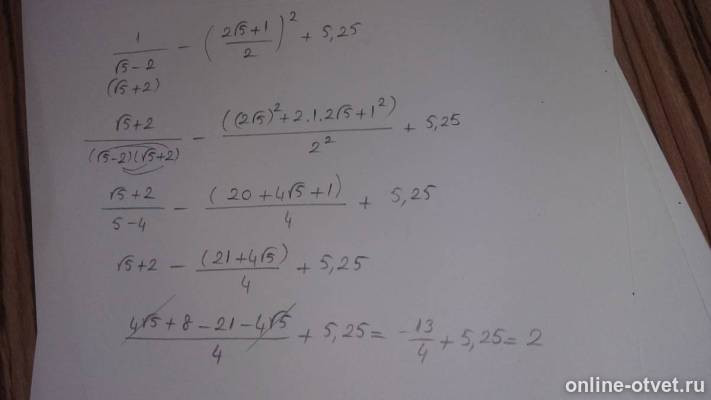 1/(√5 - 2) - ((2√5 + 1)/2)² + 5,25
(√5 + 2)
(√5 + 2)/((√5-2)(√5+2)) - ((2√5)² + 2·1·2√5 + 1²)/2² + 5,25
(√5 + 2)/(5-4) - (20 + 4√5 + 1)/4 + 5,25
√5 + 2 - (21 + 4√5)/4 + 5,25
(4√5 + 8 - 21 - 4√5)/4 + 5,25 = -13/4 + 5,25 = 2
online-otvet.ru